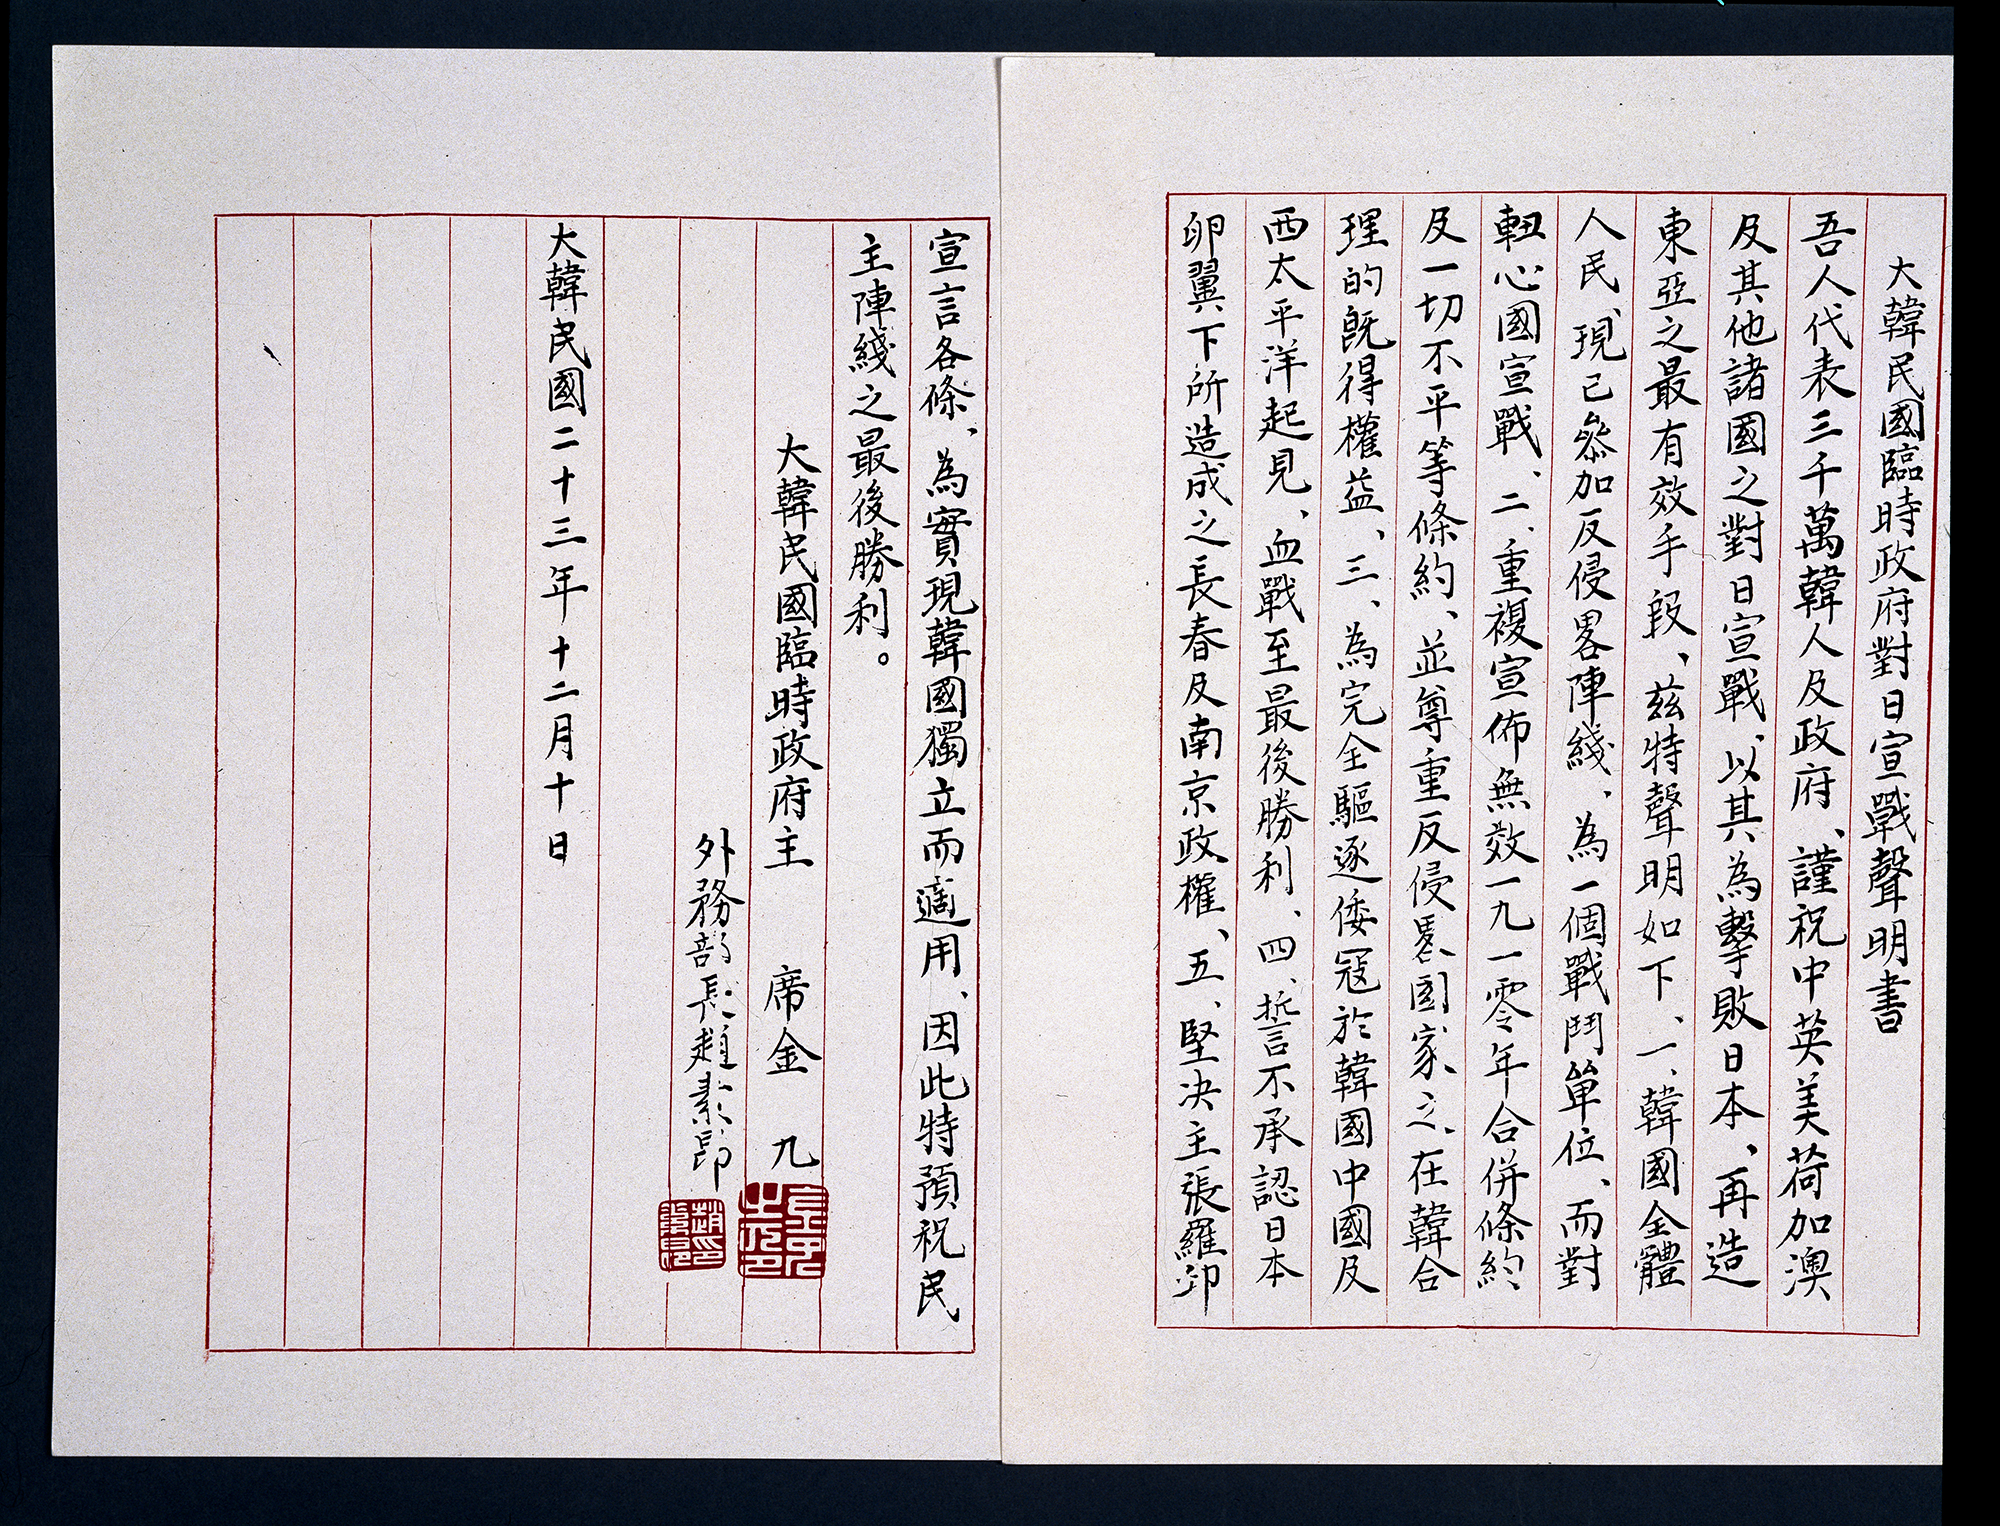 大韓民國臨時政府對日宣戰聲明書
吾人代表三千萬韓人及政府、謹祝中英美荷加澳
及其他諸國之對日宣戰、以其為擊敗日本、再造
東亞之最有效手段、茲特聲明如下、一、韓國全體
人民、現已參加反侵畧陣綫、為一個戰鬥單位、而對
軸心國宣戰、二、重複宣佈無效一九一零年合併條約
及一切不平等條約、並尊重反侵畧國家之、在韓合
理的既得權益、三、為完全驅逐倭寇於韓國中國及
西太平洋起見、血戰至最後勝利、四、誓言不承認日本
卵翼下所造成之長春及南京政權、五、堅決主張羅邱
宣言各條、為實現韓國獨立而適用、因此特預祝民
主陣綫之最後勝利。
大韓民國臨時政府主 席金 九
外務部長趙素昂
大韓民國二十三年十二月十日